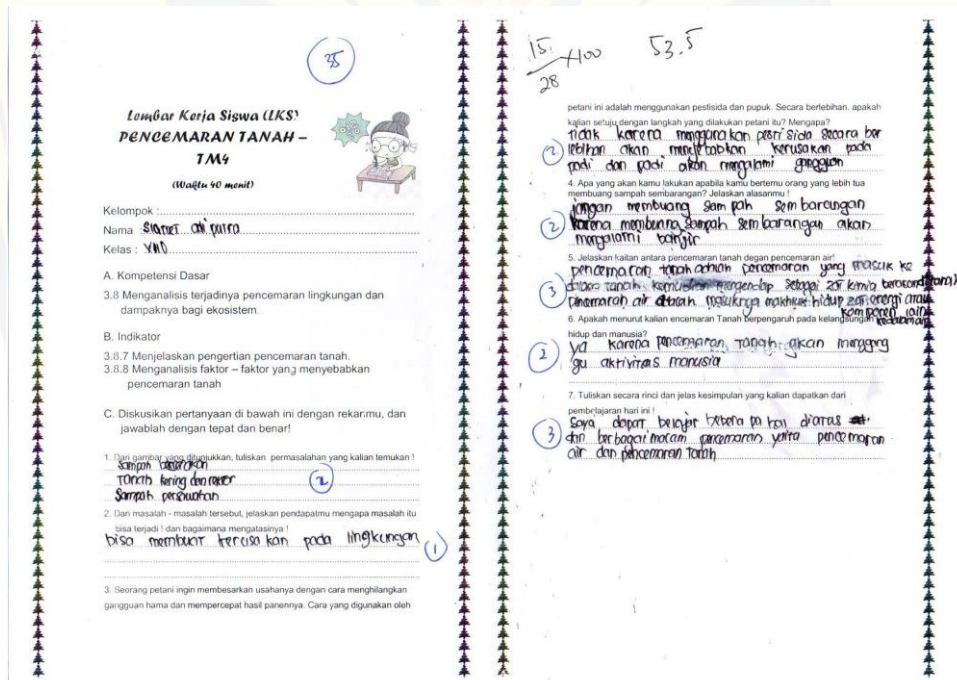 35
Lembar Kerja Siswa (LKS)
PENCEMARAN TANAH –
TM4
(Waktu 40 menit)
Kelompok :
Nama
Kelas : VIID
A. Kompetensi Dasar
3.8 Menganalisis terjadinya pencemaran lingkungan dan
dampaknya bagi ekosistem.
B. Indikator
3.8.7 Menjelaskan pengertian pencemaran tanah.
3.8.8 Menganalisis faktor – faktor yang menyebabkan
pencemaran tanah
C. Diskusikan pertanyaan di bawah ini dengan rekanmu, dan
jawablah dengan tepat dan benar!
1. Dari gambar yang ditunjukkan, tuliskan permasalahan yang kalian temukan !
Sampah
Tanah kering dan
Sampah
2
2. Dari masalah - masalah tersebut, jelaskan pendapatmu mengapa masalah itu
bisa terjadi ! dan bagaimana mengatasinya !
bisa membuat kerusakan pada lingkungan
1
3. Seorang petani ingin membesarkan usahanya dengan cara menghilangkan
gangguan hama dan mempercepat hasil panennya. Cara yang digunakan oleh
15
28 x100 53.5
petani ini adalah menggunakan pestisida dan pupuk. Secara berlebihan. apakah
kalian setuju dengan langkah yang dilakukan petani itu? Mengapa?
tidak karena menggunakan pestisida secara ber
2 lebihan akan menyebabkan kerusakan pada
padi dan padi akan mengalami
4. Apa yang akan kamu lakukan apabila kamu bertemu orang yang lebih tua
membuang sampah sembarangan? Jelaskan alasanmu !
jangan membuang sampah sembarangan
2 karena sampah sembarangan akan
mengalami banjir
5. Jelaskan kaitan antara pencemaran tanah degan pencemaran air!
pencemaran tanah adalah pencemaran yang masuk ke
3 tanah kemudian mengendap sebagai zat kimia
pencemaran air adalah masuknya makhluk hidup zat energi atau
komponen lain
6. Apakah menurut kalian encemaran Tanah berpengaruh pada kelangsungan
hidup dan manusia?
2 ya karena pencemaran Tanah akan mengang
gu aktivitas manusia
7. Tuliskan secara rinci dan jelas kesimpulan yang kalian dapatkan dari
pembelajaran hari ini !
Saya dapat belajar bebera pa hal diatas
3 dan berbagai macam pencemaran yaitu pencemaran
air dan pencemaran tanah